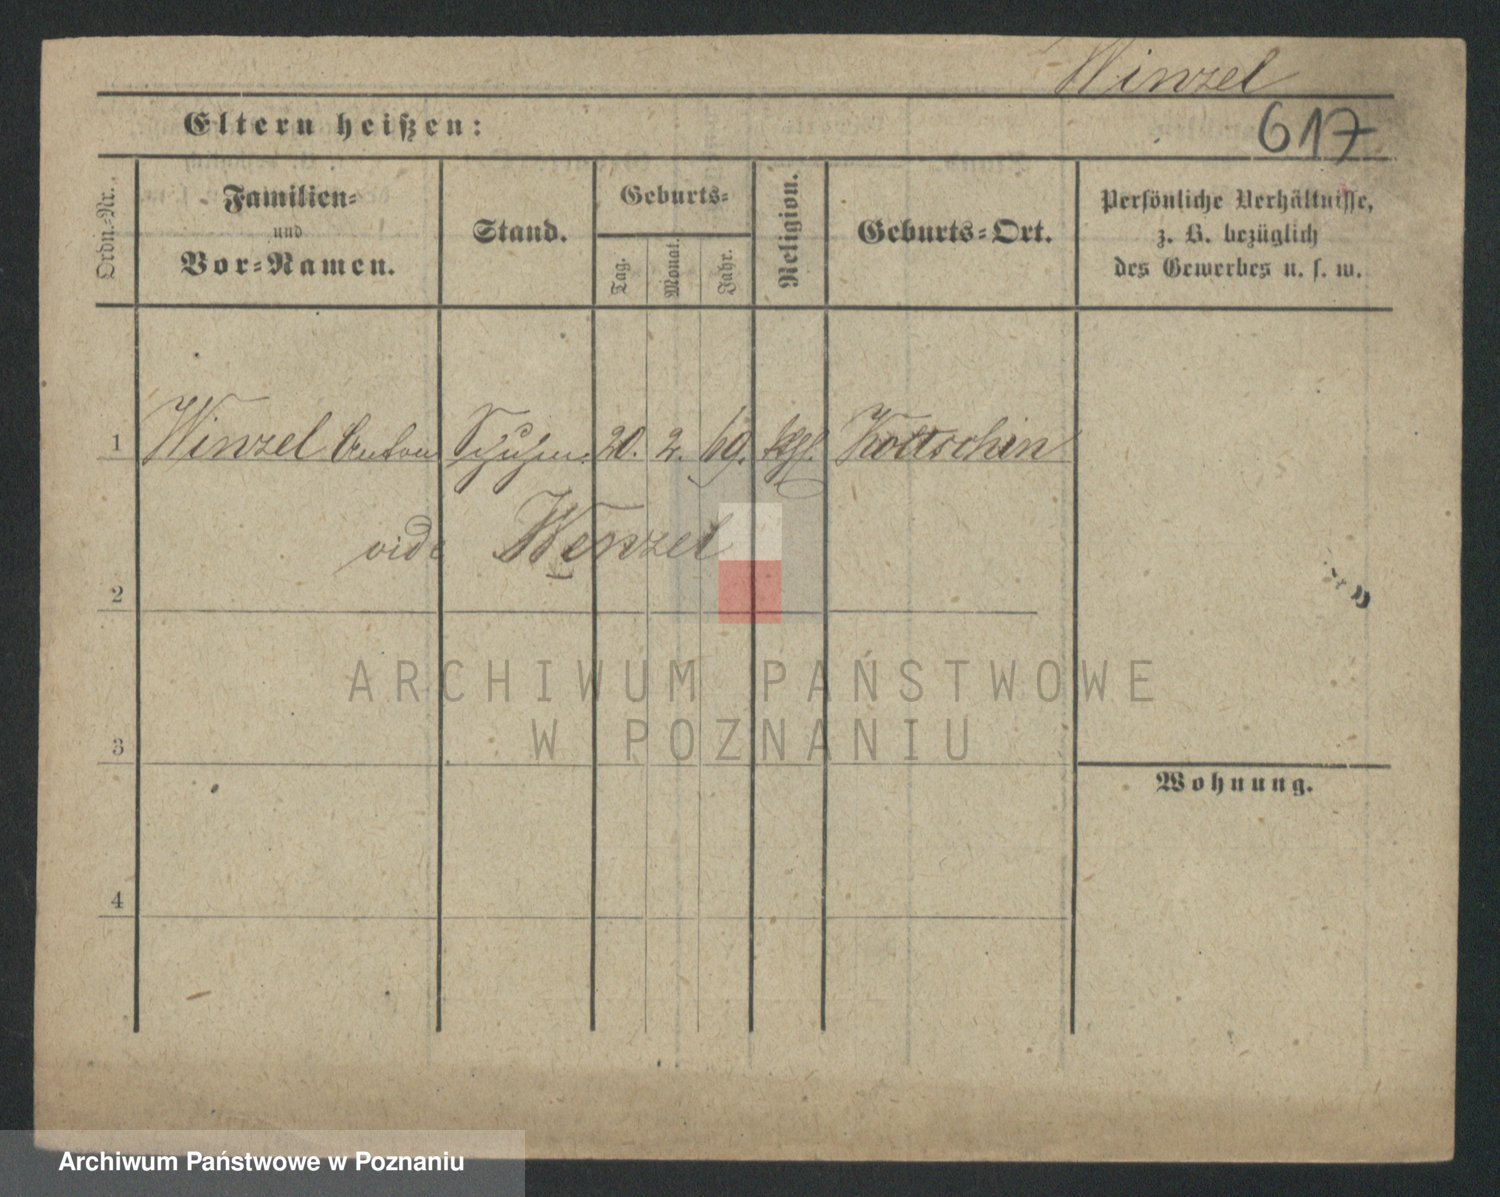 Winzel
617
Eltern heißen:
Ordn.-Nr.
Familien-
und
Vor-Namen.
Stand.
Geburts-
Tag.
Monat.
Jahr.
Religion.
Geburts-Ort.
Persönliche Verhältnisse,
z. B. bezüglich
des Gewerbes u. s. w.
1 Winzel Anton Schuhm. 20. 2. 69. kath. Kottschin
vide Wenzel
2
3
4
Wohnung.
ARCHIWUM PAŃSTWOWE
W POZNANIU
Archiwum Państwowe w Poznaniu